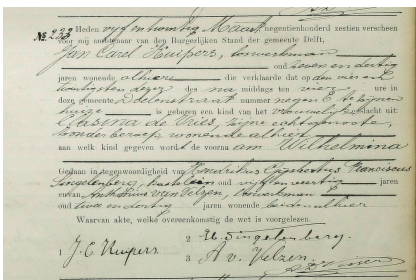 No. 233 Heden vijf en twintig Maart negentienhonderd zestien verscheen
voor mij ambtenaar van den Burgerlijken Stand der gemeente Delft,
Jan Carel Kuipers, loswerkman
oud zeven en dertig
jaren wonende alhier die verklaarde dat op den vier en
twintigsten dezer des na middags ten vier ure in
deze gemeente Doelenstraat nummer negen E te zijnen
huize is geboren een kind van het vrouwelijk geslacht uit:
Klasina de Vries, zijne echtgenoote,
zonder beroep wonende alhier
aan welk kind gegeven wordt de voornaam Wilhelmina
Gedaan in tegenwoordigheid van Hendrikus Gijsbertus Franciscus
Singelenberg, oud vijftig jaren
en van Anthonius van Velzen,
oud twee en dertig jaren wonende beiden alhier
Waarvan akte, welke overeenkomstig de wet is voorgelezen.
1 J. C. Kuipers
2 Singelenberg.
3 A. v. Velzen